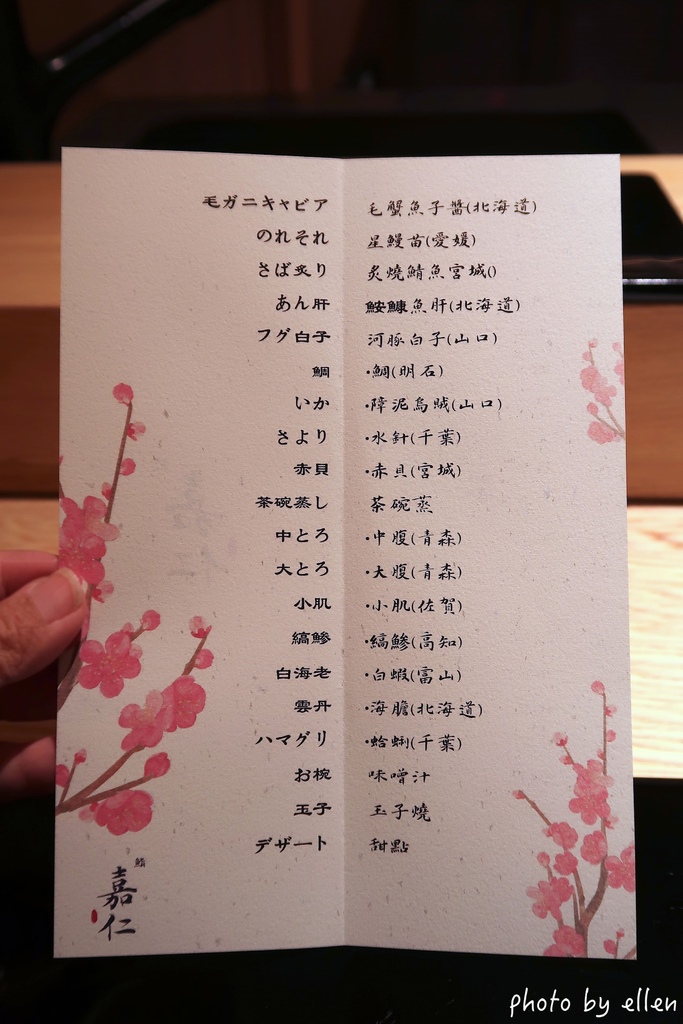 毛ガニキャビア 毛蟹魚子醬(北海道)
のれそれ 星鰻苗(愛媛)
さば炙り 炙燒鯖魚宮城()
あん肝 鮟鱇魚肝(北海道)
フグ白子 河豚白子(山口)
鯛 ·鯛(明石)
いか ·障泥烏賊(山口)
さより ·水針(千葉)
赤貝 ·赤貝(宮城)
茶碗蒸し 茶碗蒸
中とろ ·中腹(青森)
大とろ ·大腹(青森)
小肌 ·小肌(佐賀)
縞鯵 ·縞鯵(高知)
白海老 ·白蝦(富山)
雲丹 ·海膽(北海道)
ハマグリ ·蛤蜊(千葉)
お椀 味噌汁
玉子 玉子燒
デザート 甜點
鮨
嘉仁
photo by ellen